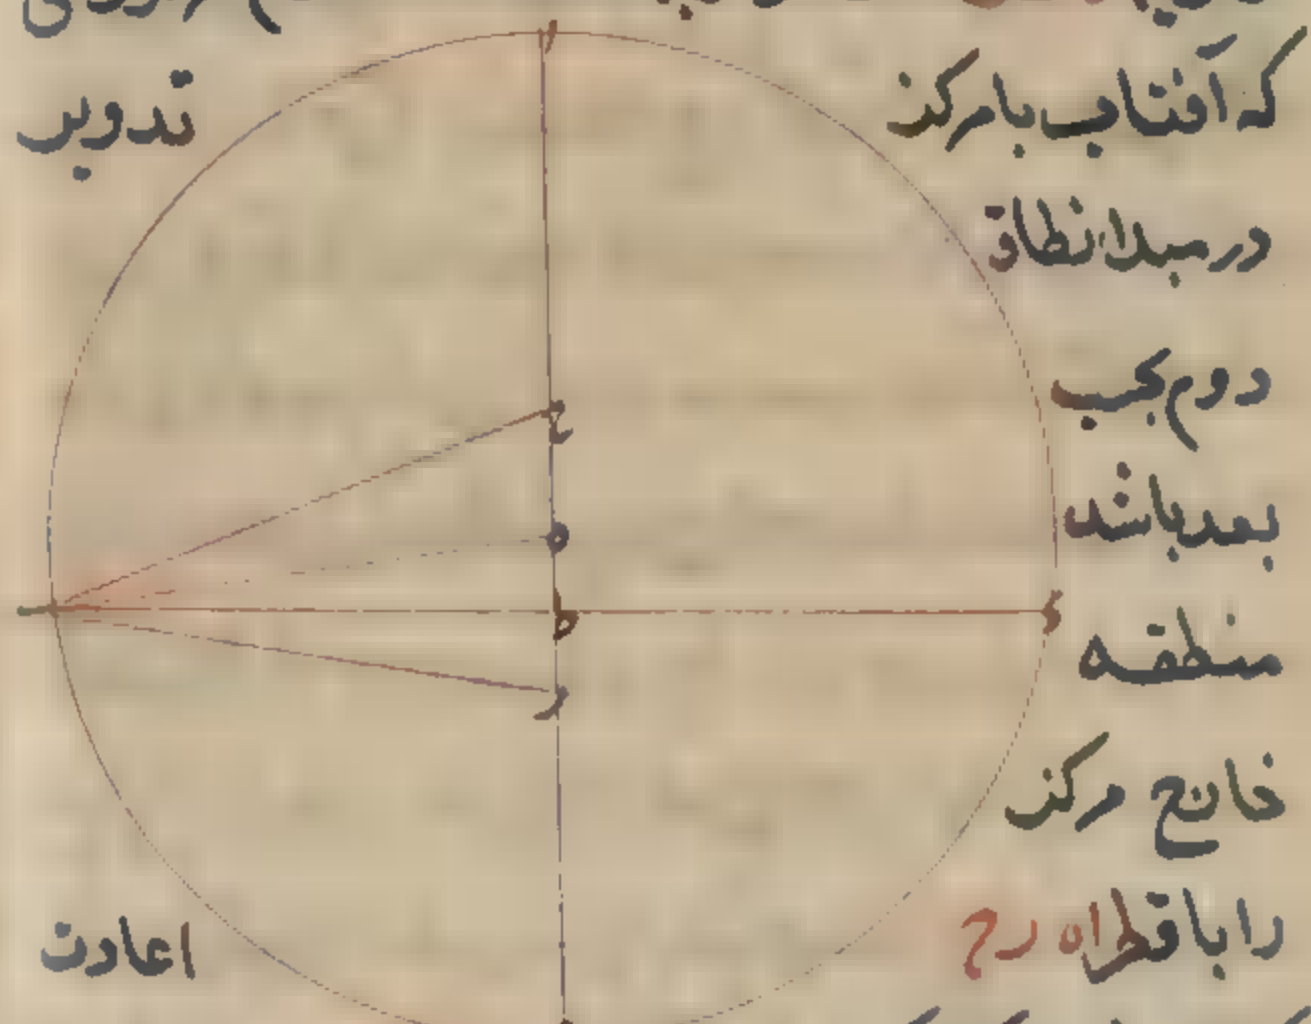 که آفتاب یا مرکز
تدویر
در مبدا نطاق
دوم بحسب
بعد باشد
منطقه
خارج مرکز
را با قطر ا ه ر ح
اعادت
ا
ح
ه
ط
ر